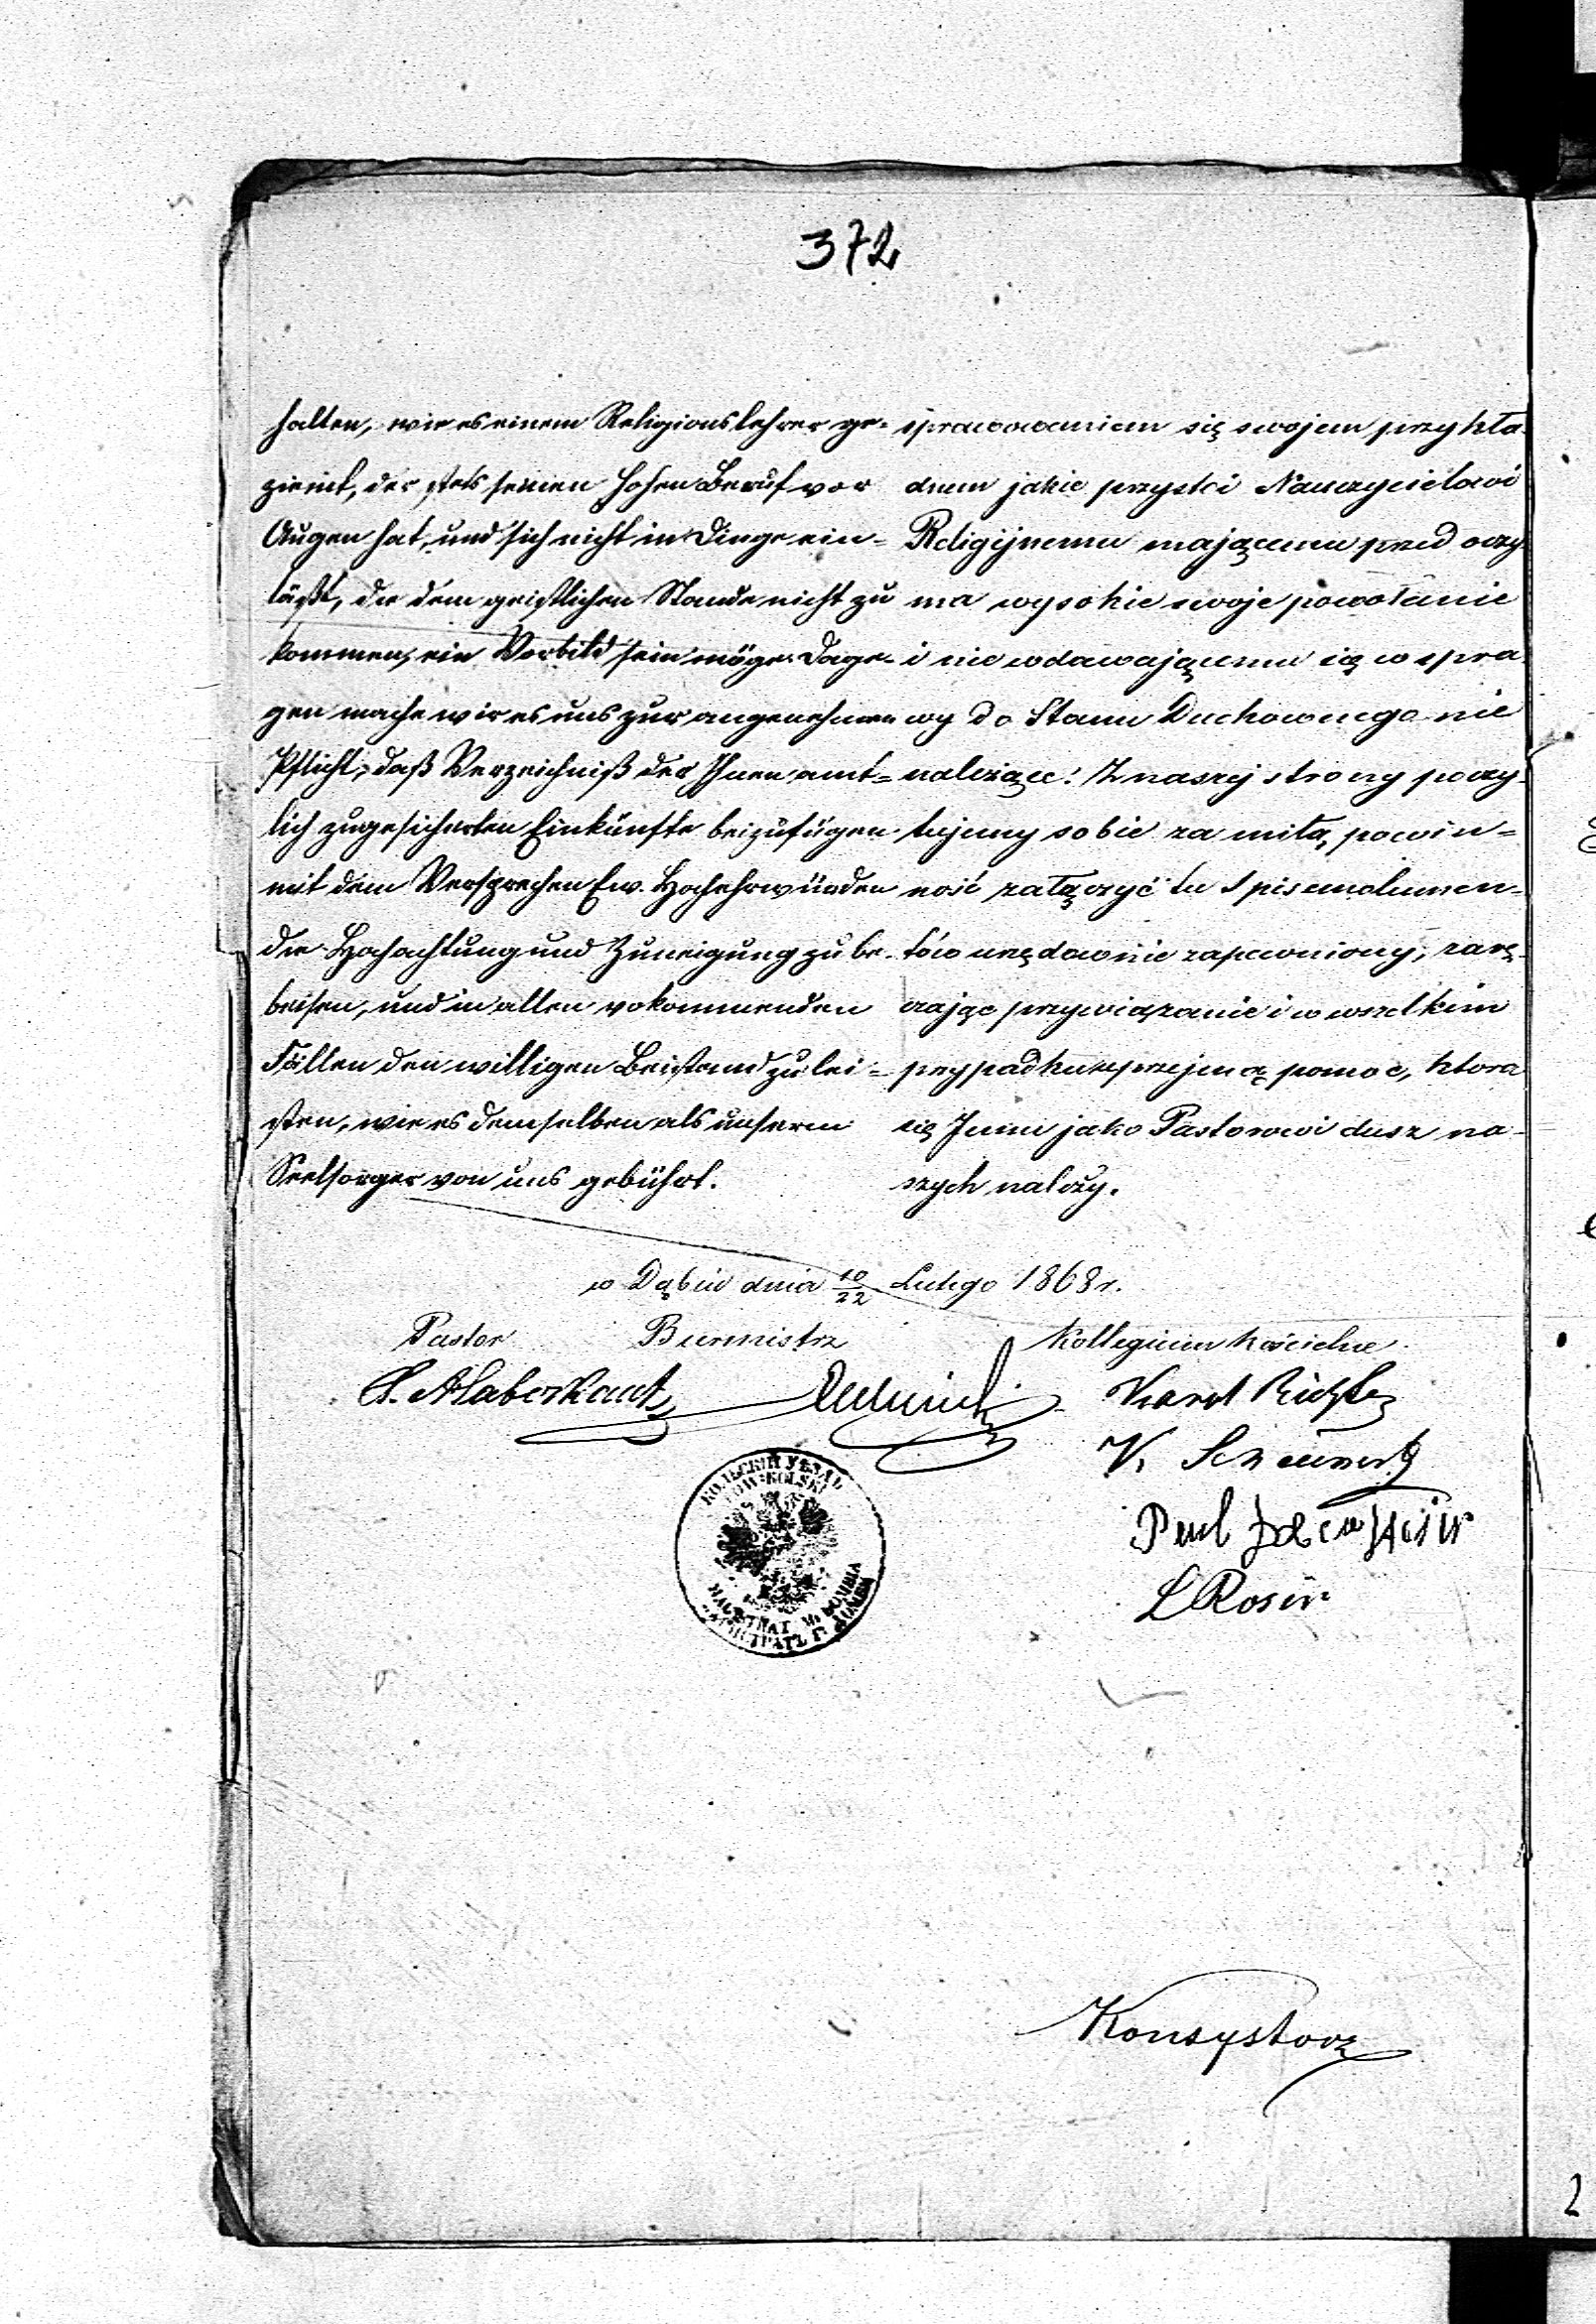 372
halten, wie es einem Religionslehrer ge-
ziemt, der stets seinen hohen Beruf vor
Augen hat, und sich nicht in Dinge ein-
läßt, die dem geistlichen Stande nicht zu
kommen, ein Vorbild sein möge. Dage-
gen mache wir es uns zur angenehmen
Pflicht, daß Verzeichniß der Ihnen amt-
lich zugesicherten Einkünfte beizufügen
mit dem Versprechen Ew. Hochehrwürden
die Hochachtung und Zuneigung zu be-
weisen, und in allen vokommenden
Fällen den willigen Beistand zu lei-
sten, wie es demselben als unserm
Seelsorger von uns gebührt.
sprawowaniem się swojem przykła
dnem jakie przystoi Nauczycielowi
Religijnemu mającemu przed oczy
ma wysokie swoje powołanie
i nie wdawającemu się w spra
wy do Stanu Duchownego nie
należące! Z naszej strony poczy-
tujemy sobie za miłą, powin=
ność załączyć tu Spis emolumen-
tów urzędownie zapewniony, zarę-
czając przywiązanie i w wszelkim
przypadku uprzejmą pomoc, ktora
się Jemu jako Pastorowi dusz na-
szych należy.
w Dąbiu dnia 10/22 Lutego 1868 r.
Pastor Burmistrz Kollegium kościelne
Haberkant
Karol Richter
V.
Paul
L Rosin
КОЛЬСКІЙ УѢЗДЪ
POW: KOLSKI
MAGISTRAT M. DOMBIA
МАГИСТРАТЪ Г. ДОМБЯ
Konsystorz
2